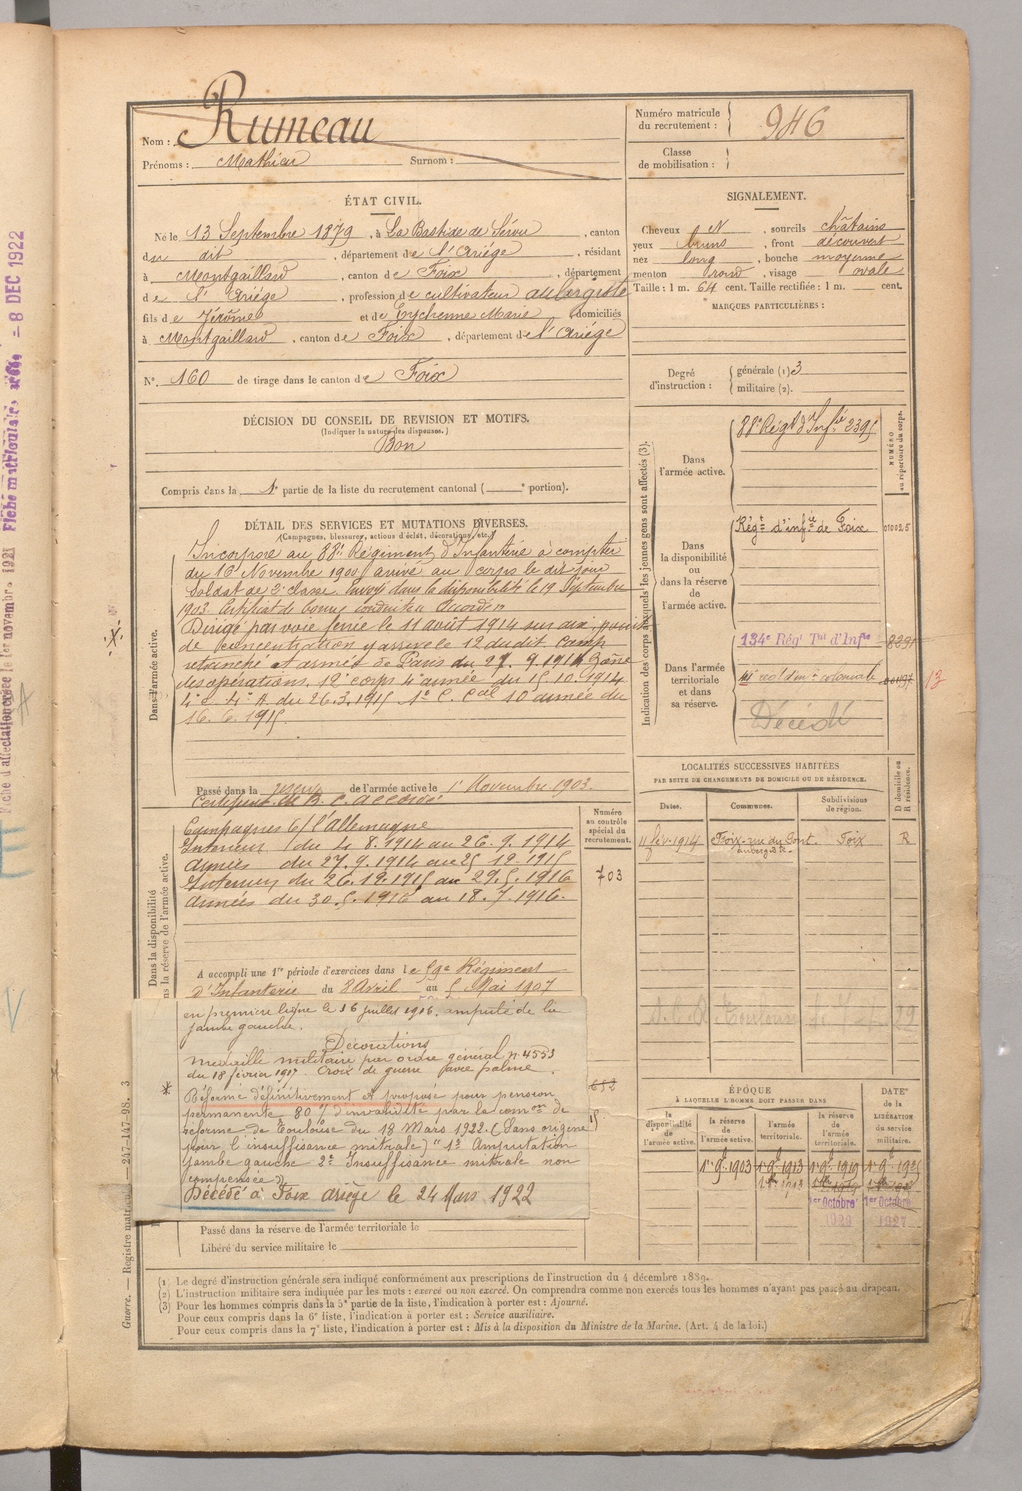 Nom : Rumeau
Prénoms : Mathieu Surnom :
Numéro matricule du recrutement : 946
Classe de mobilisation :
ÉTAT CIVIL.
Né le 13 Septembre 1879, à La Bastide de Sérou, canton
du dit, département de l'Ariége, résidant
à Montgaillard, canton de Foix, département
de l'Ariége, profession de cultivateur aubergiste
fils de Jérôme et de Eychenne Marie, domiciliés
à Montgaillard, canton de Foix, département de l'Ariége
N° 160 de tirage dans le canton de Foix
SIGNALEMENT.
Cheveux N, sourcils châtains
yeux bruns, front découvert
nez long, bouche moyenne
menton rond, visage ovale
Taille : 1 m. 64 cent. Taille rectifiée : 1 m. cent.
MARQUES PARTICULIÈRES :
Degré d'instruction : générale (1) 3
militaire (2).
DÉCISION DU CONSEIL DE REVISION ET MOTIFS.
(Indiquer la nature des dispenses.)
Bon
Compris dans la 1e partie de la liste du recrutement cantonal ( e portion).
DÉTAIL DES SERVICES ET MUTATIONS DIVERSES.
(Campagnes, blessures, actions d'éclat, décorations, etc.)
Dans l'armée active.
Incorporé au 88e Régiment d'Infanterie à compter
du 16 Novembre 1900, arrivé au corps le dit jour
soldat de 2e classe. Envoyé dans la disponibilité le 19 Septembre
1903. Certificat de bonne conduite Accordé
Dirigé par voie ferrée le 11 août 1914 sur aux points
de concentration y arrivé le 12 dudit camp
retranché et armée de Paris du 27.9.1914 Zône
des opérations. 12e corps 4e armée du 15.10.1914
du 26.3.1915 10 armée du
16.6.1915
Passé dans la réserve de l'armée active le 1er Novembre 1903.
Certificat de B. C. accordé
Dans la disponibilité
ou dans la réserve de l'armée active.
Campagnes c/ l'Allemagne
Intérieur du 4.8.1914 au 26.9.1914
Armées du 27.9.1914 au 25 12.1915
Intérieur du 26.12.1915 au 29.5.1916
Armées du 30.5.1916 au 18.7.1916.
A accompli une 1re période d'exercices dans le 59e Régiment
d'Infanterie du 8 Avril au 5 Mai 1907
en première ligne le 16 juillet 1916. amputé de la
jambe gauche.
Décorations
Médaille militaire par ordre général n. 4553
du 18 février 1917. Croix de guerre avec palme.
* Réformé définitivement et proposé pour pension
permanente 80 % d'invalidité par la comon de
réforme de Toulouse du 13 Mars 1922. (Sans origine
pour l'insuffisance mitrale) "1° Amputation
jambe gauche 2° Insuffisance mitrale non
compensée".
Décédé à Foix Ariège le 24 Mars 1922
Passé dans la réserve de l'armée territoriale le
Libéré du service militaire le
Numéro au contrôle spécial du recrutement.
703
Indication des corps auxquels les jeunes gens sont affectés (3).
Dans l'armée active.
88e Régt d'Infie 2395
NUMÉRO au répertoire du corps.
Dans la disponibilité ou dans la réserve de l'armée active.
Régt d'infie de Foix 010025
Dans l'armée territoriale et dans sa réserve.
134e Rég Tal d'Infie 8891
coloniale
13
Décédé
LOCALITÉS SUCCESSIVES HABITÉES
PAR SUITE DE CHANGEMENTS DE DOMICILE OU DE RÉSIDENCE.
Dates. Communes. Subdivisions de région. D domicile ou R résidence.
11 fév. 1914 Foix, rue du Pont. Foix R
aubergiste
ÉPOQUE
A LAQUELLE L'HOMME DOIT PASSER DANS
la disponibilité de l'armée active. la réserve de l'armée active. l'armée territoriale. la réserve de l'armée territoriale.
DATE de la LIBÉRATION du service militaire.
1er 9bre 1903 1er 9bre 1913 1er 9bre 1919
1er Octobre 1er Octobre
1927
(1) Le degré d'instruction générale sera indiqué conformément aux prescriptions de l'instruction du 4 décembre 1889.
(2) L'instruction militaire sera indiquée par les mots : exercé ou non exercé. On comprendra comme non exercés tous les hommes n'ayant pas passé au drapeau.
(3) Pour les hommes compris dans la 5e partie de la liste, l'indication à porter est : Ajourné.
Pour ceux compris dans la 6e liste, l'indication à porter est : Service auxiliaire.
Pour ceux compris dans la 7e liste, l'indication à porter est : Mis à la disposition du Ministre de la Marine. (Art. 4 de la loi.)
Guerre. — Registre matricule. — 247-147-98. 3
8 DEC 1922